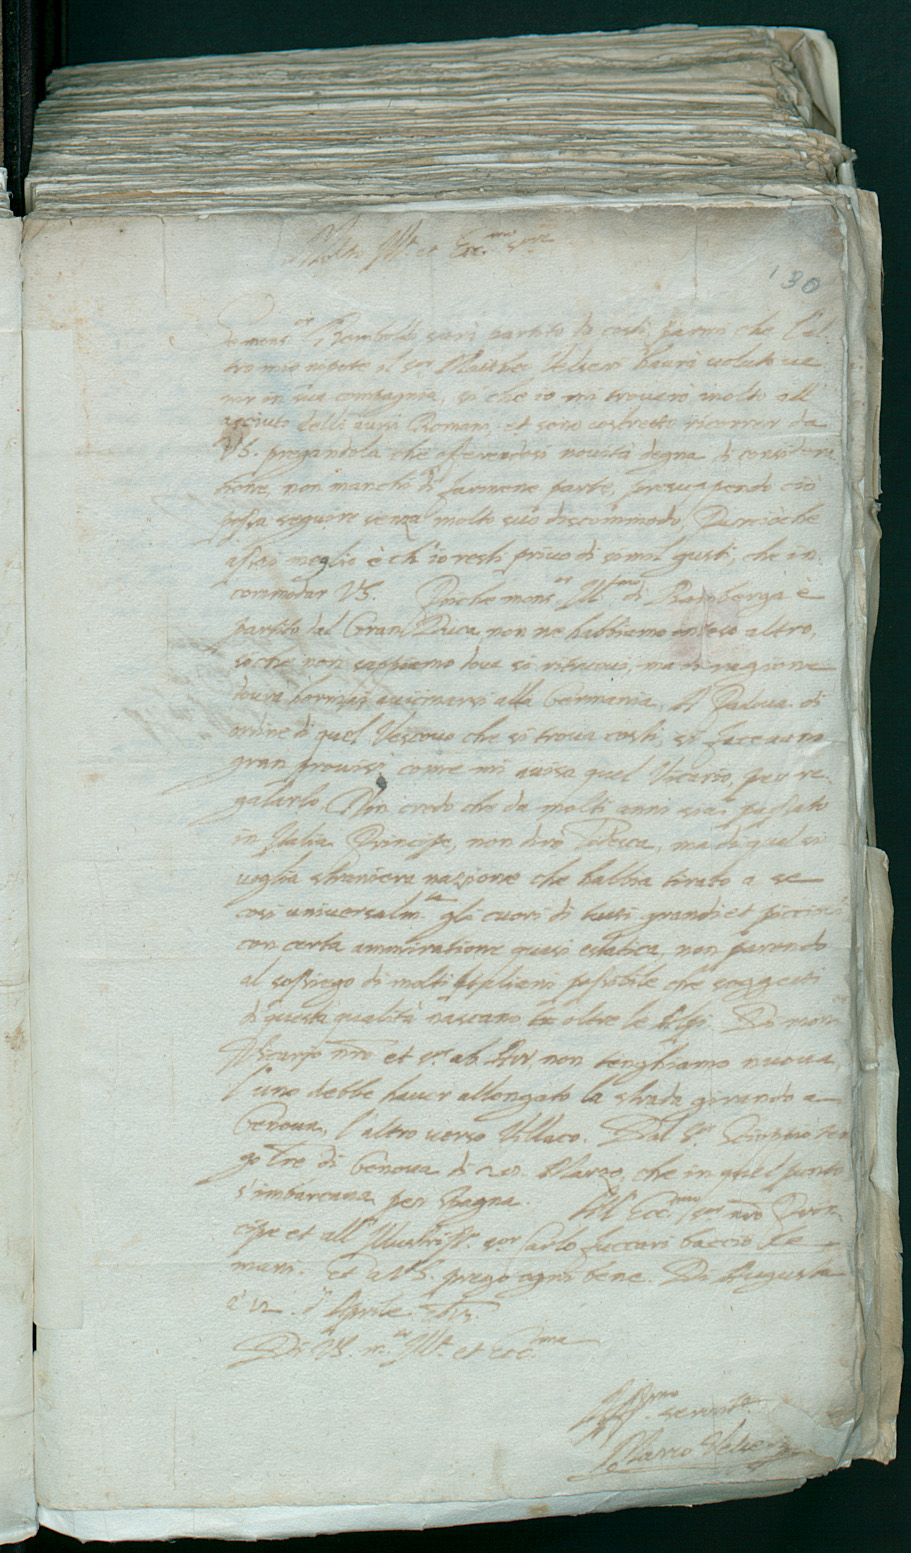 Molto Ill.re et Ecc.mo S.re
130
Se mons.or Rimboldo sarà partito da costì, parmi che l'al
tro mio nipote il s.or Matthio Velseri haurà voluto ve
nir in sua compagnia, si che io mi troverò molto all'
asciuto delli avisi Romani, et sono costretto ricorrer da
VS. pregandola che offerendosi novità degna di considera
tione, non manchi di farmene parte, presuppendo ciò
possa seguire senza molto suo discommodo, Percioche
assai meglio è ch'io resti privo di simil gusti, che in
commodar VS. Poiche mons.or Ill.mo di Bamberga è
partito dal Gran Duca, non ne habbiamo inteso altro,
siche non sappiamo dove si ritruovi, ma di ragione
dovrà hormai avicinarsi alla Germania. A Padova di
ordine di quel Vescovo che si trova costì, si faceauano
gran provisi come mi avisa quel Vicario, per re
galarlo. Non credo che da molti anni sia passato
in Italia Principe, non dirò Tedesco, ma di qual si
voglia straniera nazione che habbia tirato a se
così universalm.te gli cuori di tutti grandi et piccini
con certa ammiratione quasi estatica, non parendo
al sossiego di molti Italiani possibile che soggetti
di questa qualità nascano le oltre le Alpi. Di mons.or
Vescovo nro et s.r ab. non tenghiamo nuova,
l'uno debbe haver allongato la strada girando a
Genova, l'altro verso Villaco. Dal S.or Scioppio ten
go lre di Genova di 28. Marzo, che in quel punto
s'imbarcava per Spagna. All'Ecc.mo s.or nro Prin
cipe et all'Illustriss. s.or Carlo Fuccari baccio le
mani. et a VS. prego ogni bene. Di Augusta
a' 12. d'Aprile 1613.
Di VS. m.to Ill.re et ecc.ma
Aff.mo servit.re
Marco Velseri